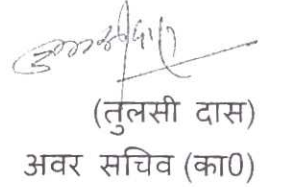 (तुलसी दास)
अवर सचिव (का0)